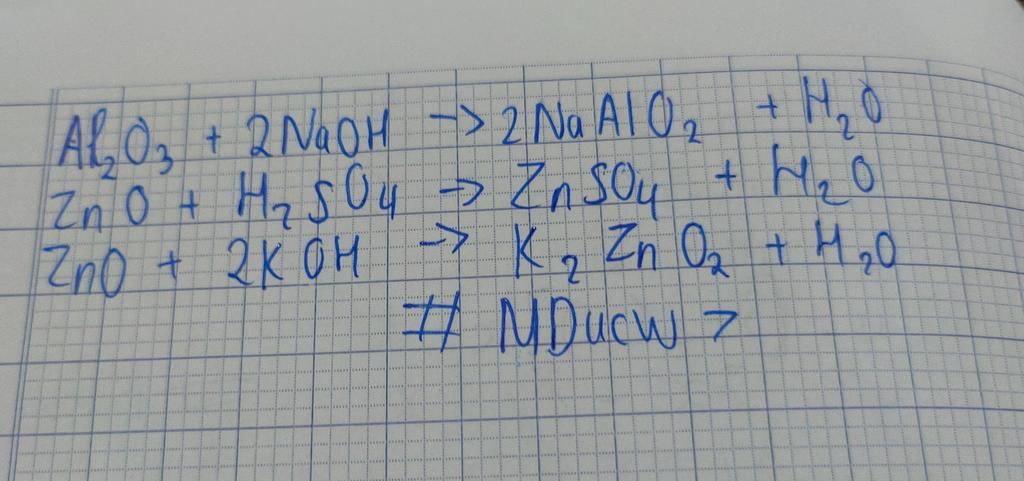 Al₂O₃ + 2NaOH -> 2NaAlO₂ + H₂O
ZnO + H₂SO₄ -> ZnSO₄ + H₂O
ZnO + 2KOH -> K₂ZnO₂ + H₂O
# MDucw >